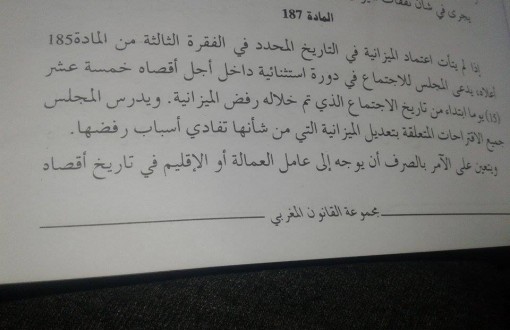 يجرى في شأن نفقات
المادة 187
إذا لم يتأت اعتماد الميزانية في التاريخ المحدد في الفقرة الثالثة من المادة185
أعلاه، يدعى المجلس للاجتماع في دورة استثنائية داخل أجل أقصاه خمسة عشر
(15) يوما ابتداء من تاريخ الاجتماع الذي تم خلاله رفض الميزانية. ويدرس المجلس
جميع الاقتراحات المتعلقة بتعديل الميزانية التي من شأنها تفادي أسباب رفضها.
ويتعين على الآمر بالصرف أن يوجه إلى عامل العمالة أو الإقليم في تاريخ أقصاه
مجموعة القانون المغربي